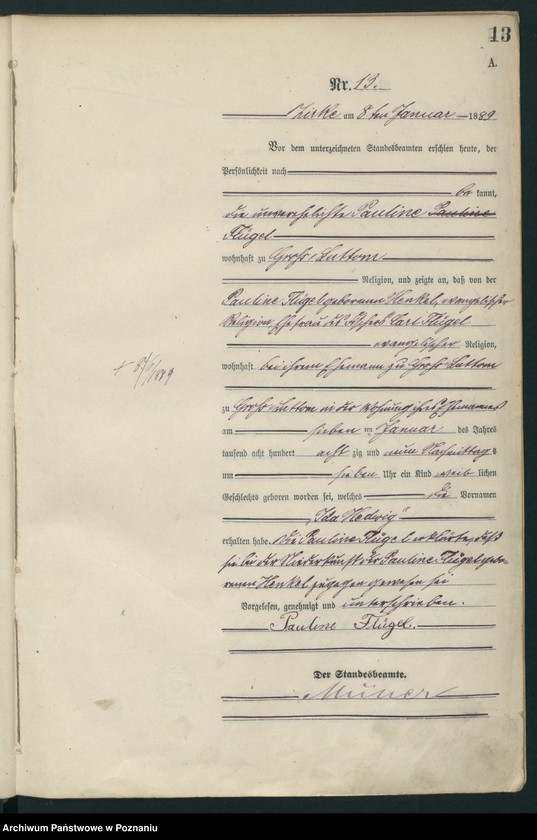 13
A.
Nr. 13.
Zirke am 8ten Januar 1889
Vor dem unterzeichneten Standesbeamten erschien heute, der
Persönlichkeit nach
be kannt,
die unverehelichte Pauline Pauline
Flügel
wohnhaft zu Groß Luttom
Religion, und zeigte an, daß von der
Pauline Flügel geborenen Henkel, evangelischer
Religion, Ehefrau des Fischers Carl Flügel
evangelischer Religion,
wohnhaft bei ihrem Ehemann zu Groß Luttom
zu Groß Luttom in der Wohnung ihres Ehemannes
am sieben ten Januar des Jahres
tausend acht hundert acht zig und neun Nachmittag s
um sieben Uhr ein Kind weib lichen
Geschlechts geboren worden sei, welches die Vornamen
„Ida Hedwig“
erhalten habe. Die Pauline Flügel erklärte, daß
sie bei der Niederkunft der Pauline Flügel gebo-
renen Henkel zugegen gewesen sei
Vorgelesen, genehmigt und unterschrieben.
Pauline Flügel.
Der Standesbeamte.
+
1889
Archiwum Państwowe w Poznaniu